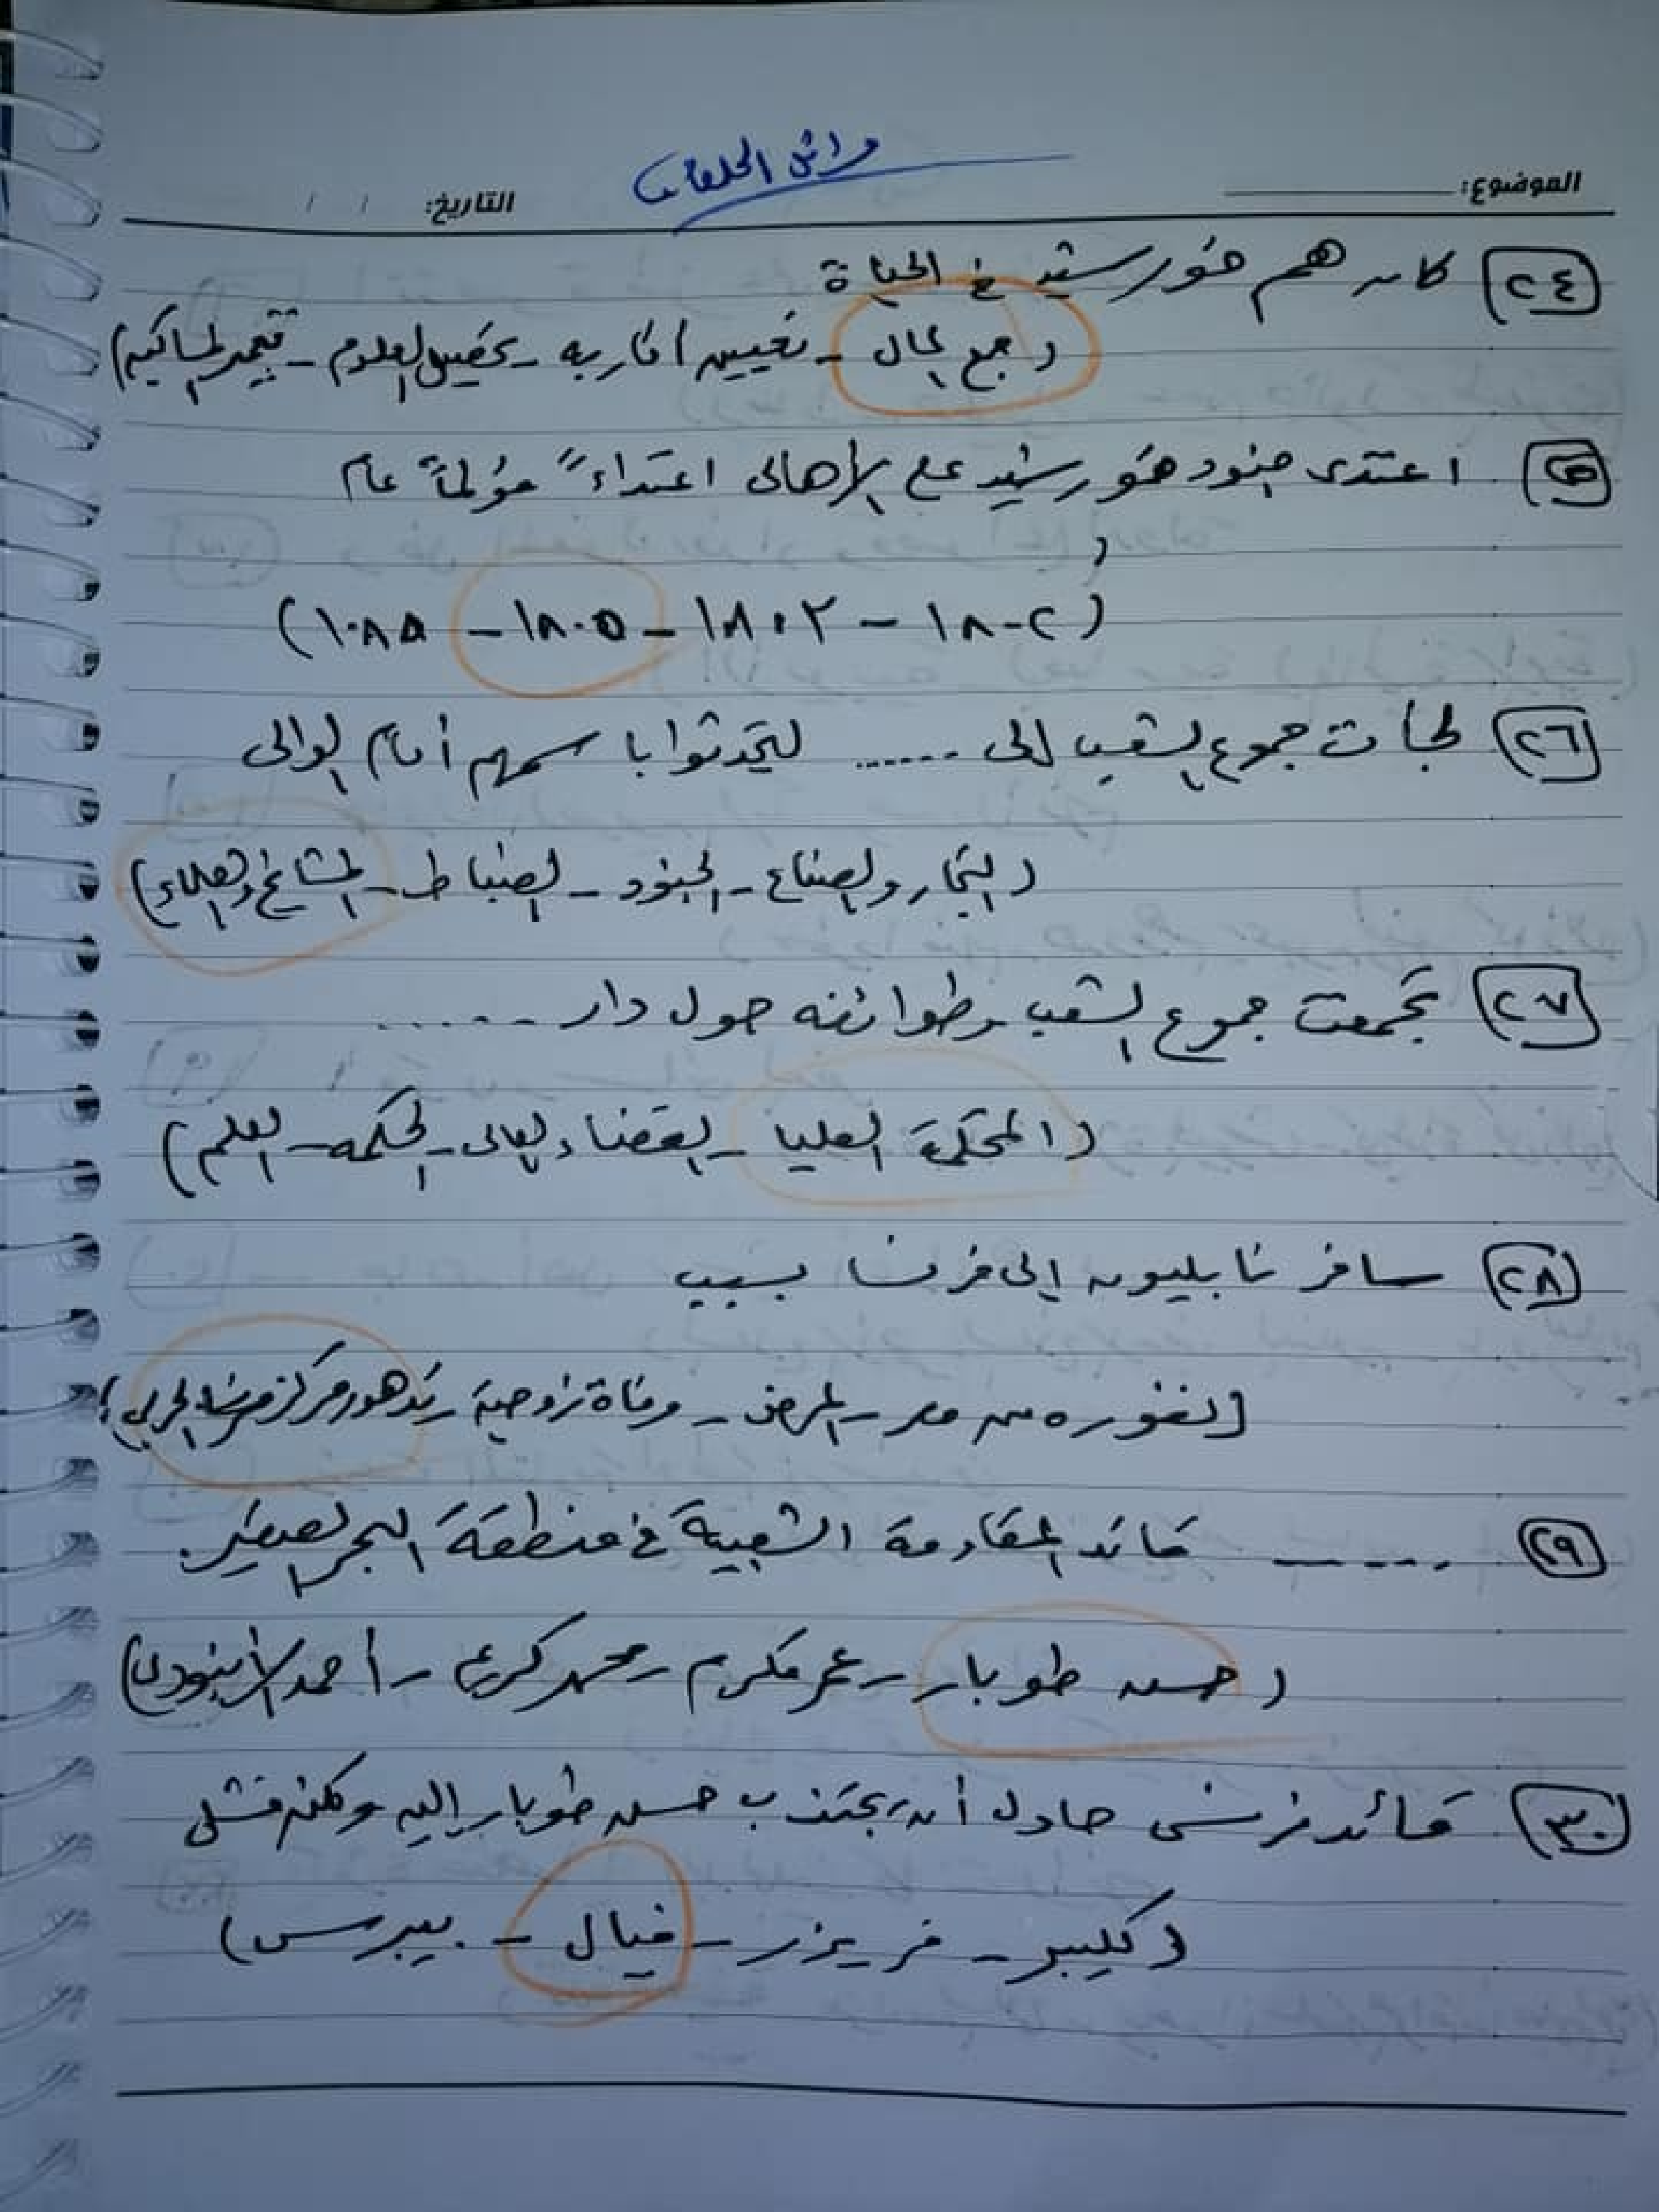 وائل الحلفاوي
الموضوع: التاريخ: / /
٢٤ كان هم خورشيد في الحياة
(جمع المال - تعيين أقاربه - تحصيل العلوم - تجميد المساكين)
٢٥ اعتدى جنود خورشيد على الأهالى اعتداءً مؤلماً عام
(
(١٨٠٢ - ١٨٠٣ - ١٨٠٥ - ١٠٨٥)
٢٦ لجأت جموع الشعب إلى ...... ليتحدثوا باسمهم أمام الوالى
(التجار والصناع - الجنود - الضباط - المشايخ والعلماء)
٢٧ تجمعت جموع الشعب وطوائفه حول دار ......
(المحكمة العليا - القضاء العالى - الحكمة - العلم)
٢٨ سافر نابليون إلى فرنسا بسبب
(نفوره من مصر - المرض - وفاة زوجية - تدهور مركز فرنسا الحربي)
٢٩ ...... قائد المقاومة الشعبية في منطقة البحر الصغير.
(حسن طوبار - عمر مكرم - محمد كريم - أحمد الأبنودى)
٣٠ قائد فرنسى حاول أن يجتذب حسن طوبار إليه ولكن فشل
(كليبر - فريزر - فيال - بيبرس)